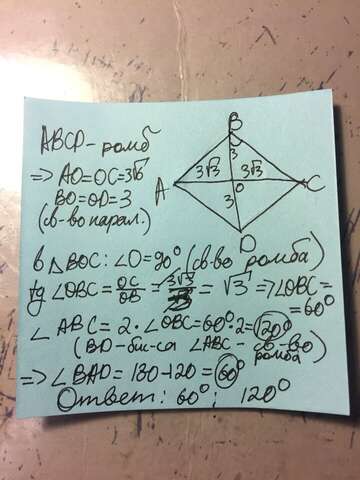 B
ABCD - ромб
3
=> AO=OC=3√3
3√3 3√3
BO=OD=3
A
O
C
3
(св-во парал.)
D
в △BOC: ∠O=90° (св-во ромба)
tg ∠OBC = OC/OB = 3√3/3 = √3 => ∠OBC =
= 60°
∠ABC = 2·∠OBC = 60°·2 = 120°
(BD - бис-са ∠ABC - св-во
ромба)
=> ∠BAD = 180-120 = 60°
Ответ: 60°; 120°